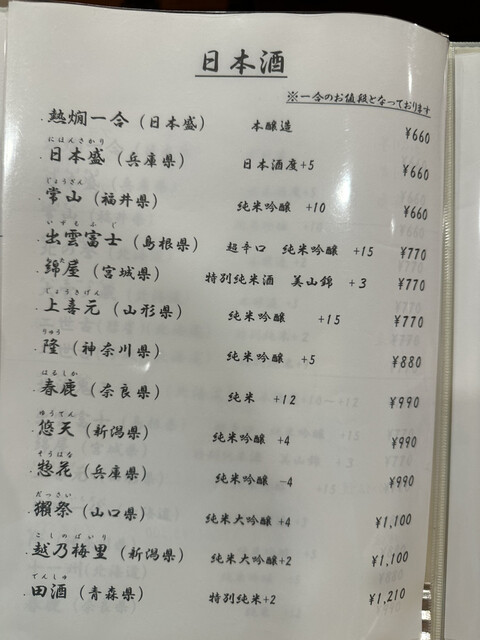 日本酒
※一合のお値段となっております
・熱燗一合（日本盛） 本醸造 ¥660
にほんさかり
・日本盛（兵庫県） 日本酒度+5 ¥660
じょうざん
・常山（福井県） 純米吟醸 +10 ¥660
いずもふじ
・出雲富士（島根県） 超辛口 純米吟醸 +15 ¥770
・錦屋（宮城県） 特別純米酒 美山錦 +3 ¥770
じょうきげん
・上喜元（山形県） 純米吟醸 +15 ¥770
りゅう
・隆（神奈川県） 純米吟醸 +5 ¥880
はるしか
・春鹿（奈良県） 純米 +12 ¥990
ゆうてん
・悠天（新潟県） 純米吟醸 +4 ¥990
そうばな
・惣花（兵庫県） 純米吟醸 -4 ¥990
だっさい
・獺祭（山口県） 純米大吟醸+4 ¥1,100
こしのばいり
・越乃梅里（新潟県） 純米大吟醸+2 ¥1,100
でんしゅ
・田酒（青森県） 特別純米+2 ¥1,210